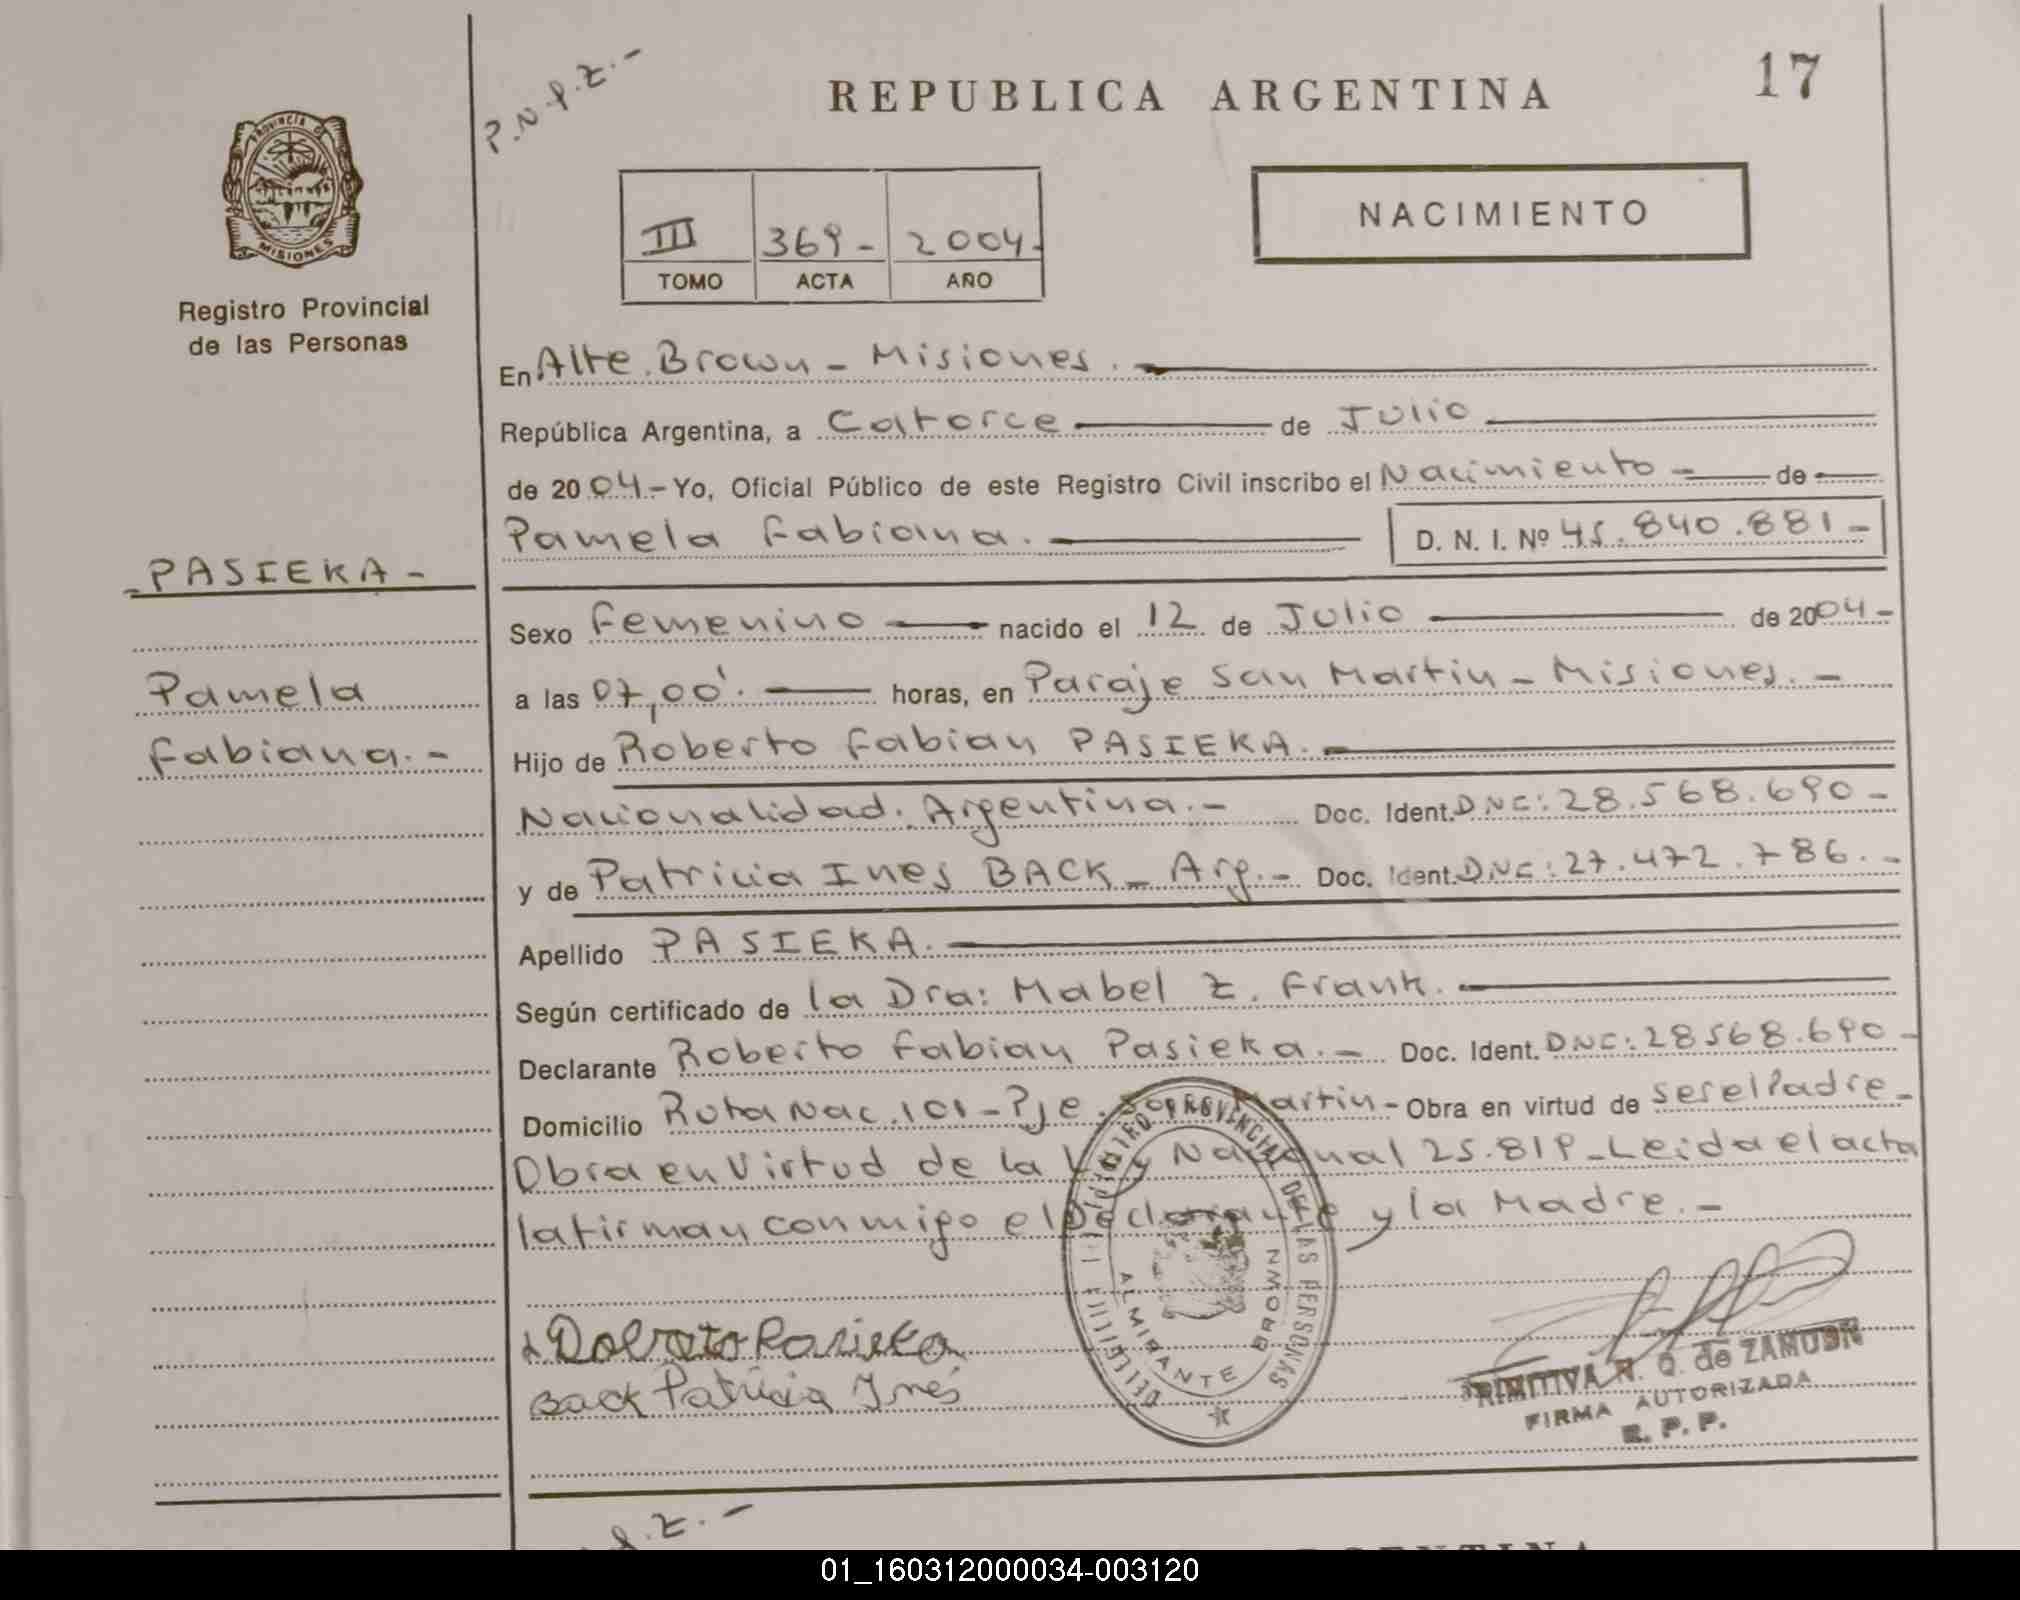 P.N.P.Z.-
REPUBLICA ARGENTINA
17
PROVINCIA DE
MISIONES
Registro Provincial
de las Personas
III 369- 2004-
TOMO ACTA AÑO
NACIMIENTO
En Alte. Brown - Misiones.
República Argentina, a Catorce de Julio
de 2004.- Yo, Oficial Público de este Registro Civil inscribo el Nacimiento - de
Pamela Fabiana. D. N. I. Nº 45.840.881-
-PASIEKA-
Pamela
Fabiana.-
Sexo Femenino nacido el 12 de Julio de 2004-
a las 07,00'. horas, en Paraje San Martin - Misiones.-
Hijo de Roberto Fabian PASIEKA.-
Nacionalidad. Argentina.- Doc. Ident. DNI: 28.568.690-
y de Patricia Ines BACK - Arg.- Doc. Ident. DNI: 27.472.786.-
Apellido PASIEKA.
Según certificado de la Dra: Mabel Z. Frank.
Declarante Roberto Fabian Pasieka.- Doc. Ident. DNI: 28568.690-
Domicilio Ruta Nac. 101 - Pje. San Martin - Obra en virtud de ser el Padre-
Obra en Virtud de la Ley Nacional 25.819 - Leida el acta
la firman conmigo el Declarante y la Madre.-
REGISTRO PROVINCIAL DE LAS PERSONAS
ALMIRANTE BROWN
Back Patricia Inés
PRIMITIVA N. Q. de ZAMUDN
FIRMA AUTORIZADA
R. P. P.
P.Z.-
01_160312000034-003120